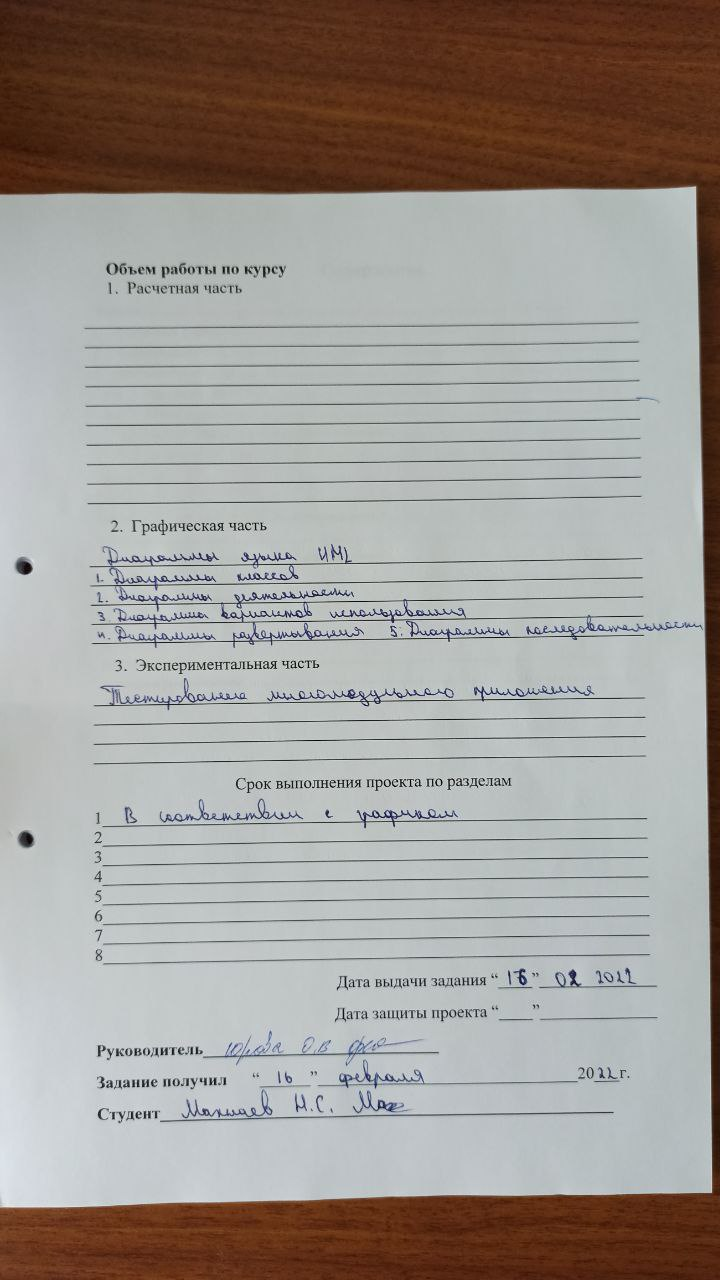 Объем работы по курсу
1. Расчетная часть
2. Графическая часть
Диаграммы языка UML
1. Диаграммы классов
2. Диаграммы деятельности
3. Диаграммы вариантов использования
4. Диаграммы развертывания 5. Диаграммы последовательности
3. Экспериментальная часть
Тестирование многомодульного приложения
Срок выполнения проекта по разделам
1 В соответствии с графиком
2
3
4
5
6
7
8
Дата выдачи задания “16” 02 2022
Дата защиты проекта “____”
Руководитель Юрова О.В
Задание получил “16” февраля 2022 г.
Студент Н.С.